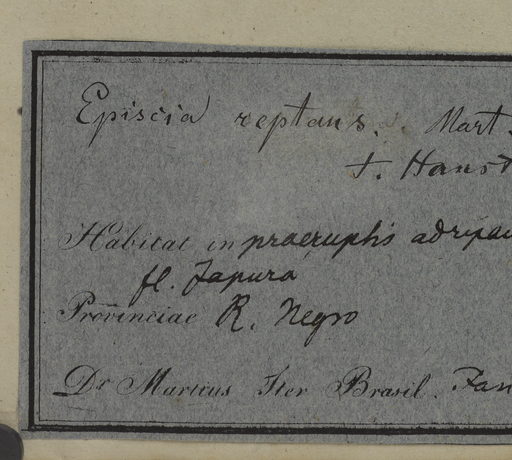 Episcia reptans. Mart.
t. Hanst
Habitat in praeruptis ad ripam
fl. Japura
Provinciae R. Negro
Dr Martius Iter Brasil. Jan